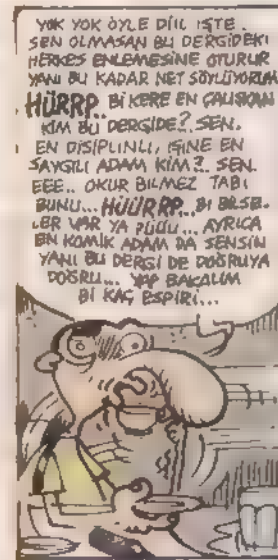 YOK YOK ÖYLE DİİL İŞTE.
SEN OLMASAN BU DERGİDEKİ
HERKES ENLEMESİNE OTURUR
YANİ BU KADAR NET SÖYLÜYORUM
HÜRRP.. Bİ KERE EN ÇALIŞKAN
KİM BU DERGİDE?. SEN.
EN DİSİPLİNLİ, İŞİNE EN
SAYGILI ADAM KİM?.. SEN.
EEE.. OKUR BİLMEZ TABİ
BUNU... HÜÜRRP... Bİ BİLSE.
LER VAR YA PÜÜÜ... AYRICA
EN KOMİK ADAM DA SENSİN
YANİ BU DERGİ DE DOĞRUYA
DOĞRU... YAP BAKALIM
Bİ KAÇ ESPİRİ...